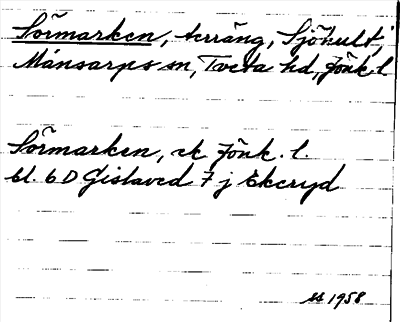 Sörmarken, terräng, Sjöhult,
Månsarps sn, Tveta hd, Jönk. l
Sörmarken, ek Jönk. l.
bl. 6 D Gislaved 7 j Ekeryd
1958